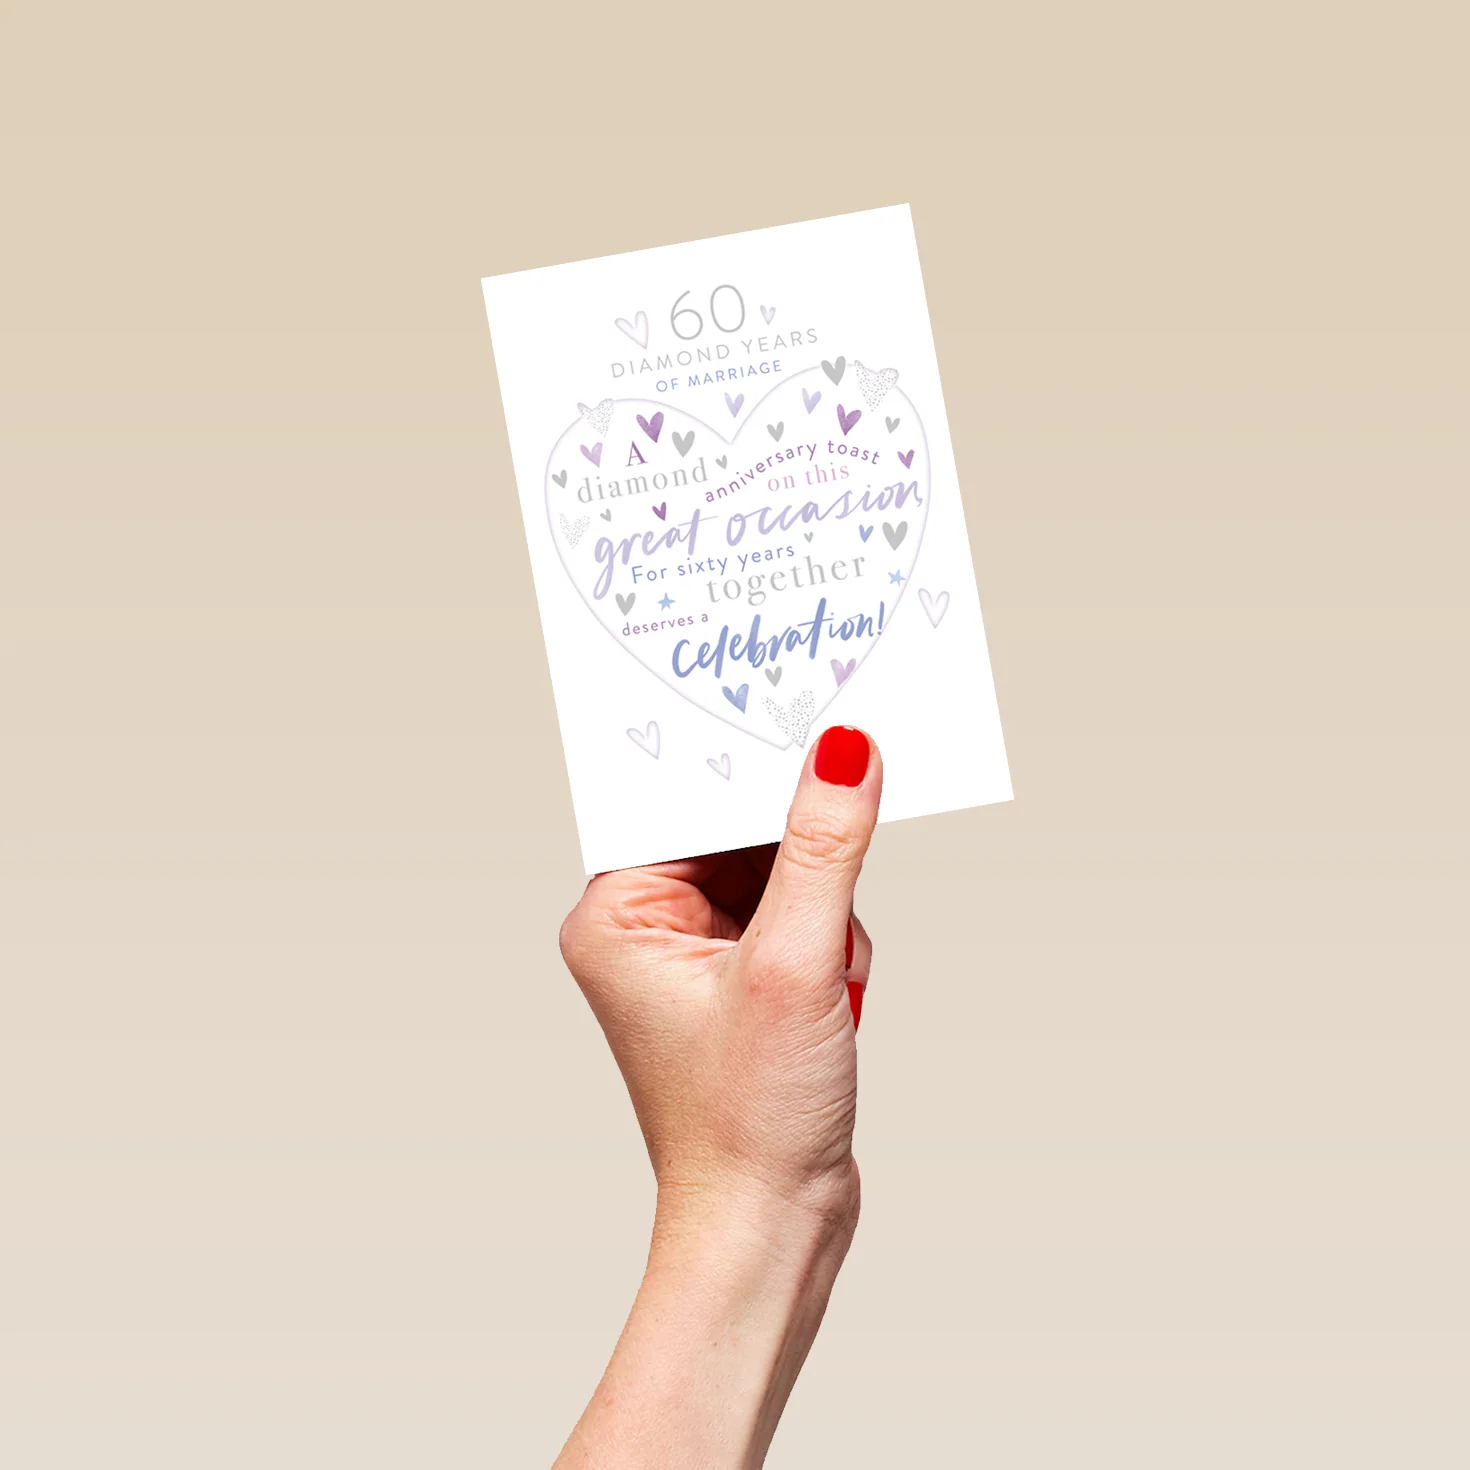 60
DIAMOND YEARS
OF MARRIAGE
A
diamond
anniversary toast
on this
great occasion,
For sixty years
together
deserves a
Celebration!